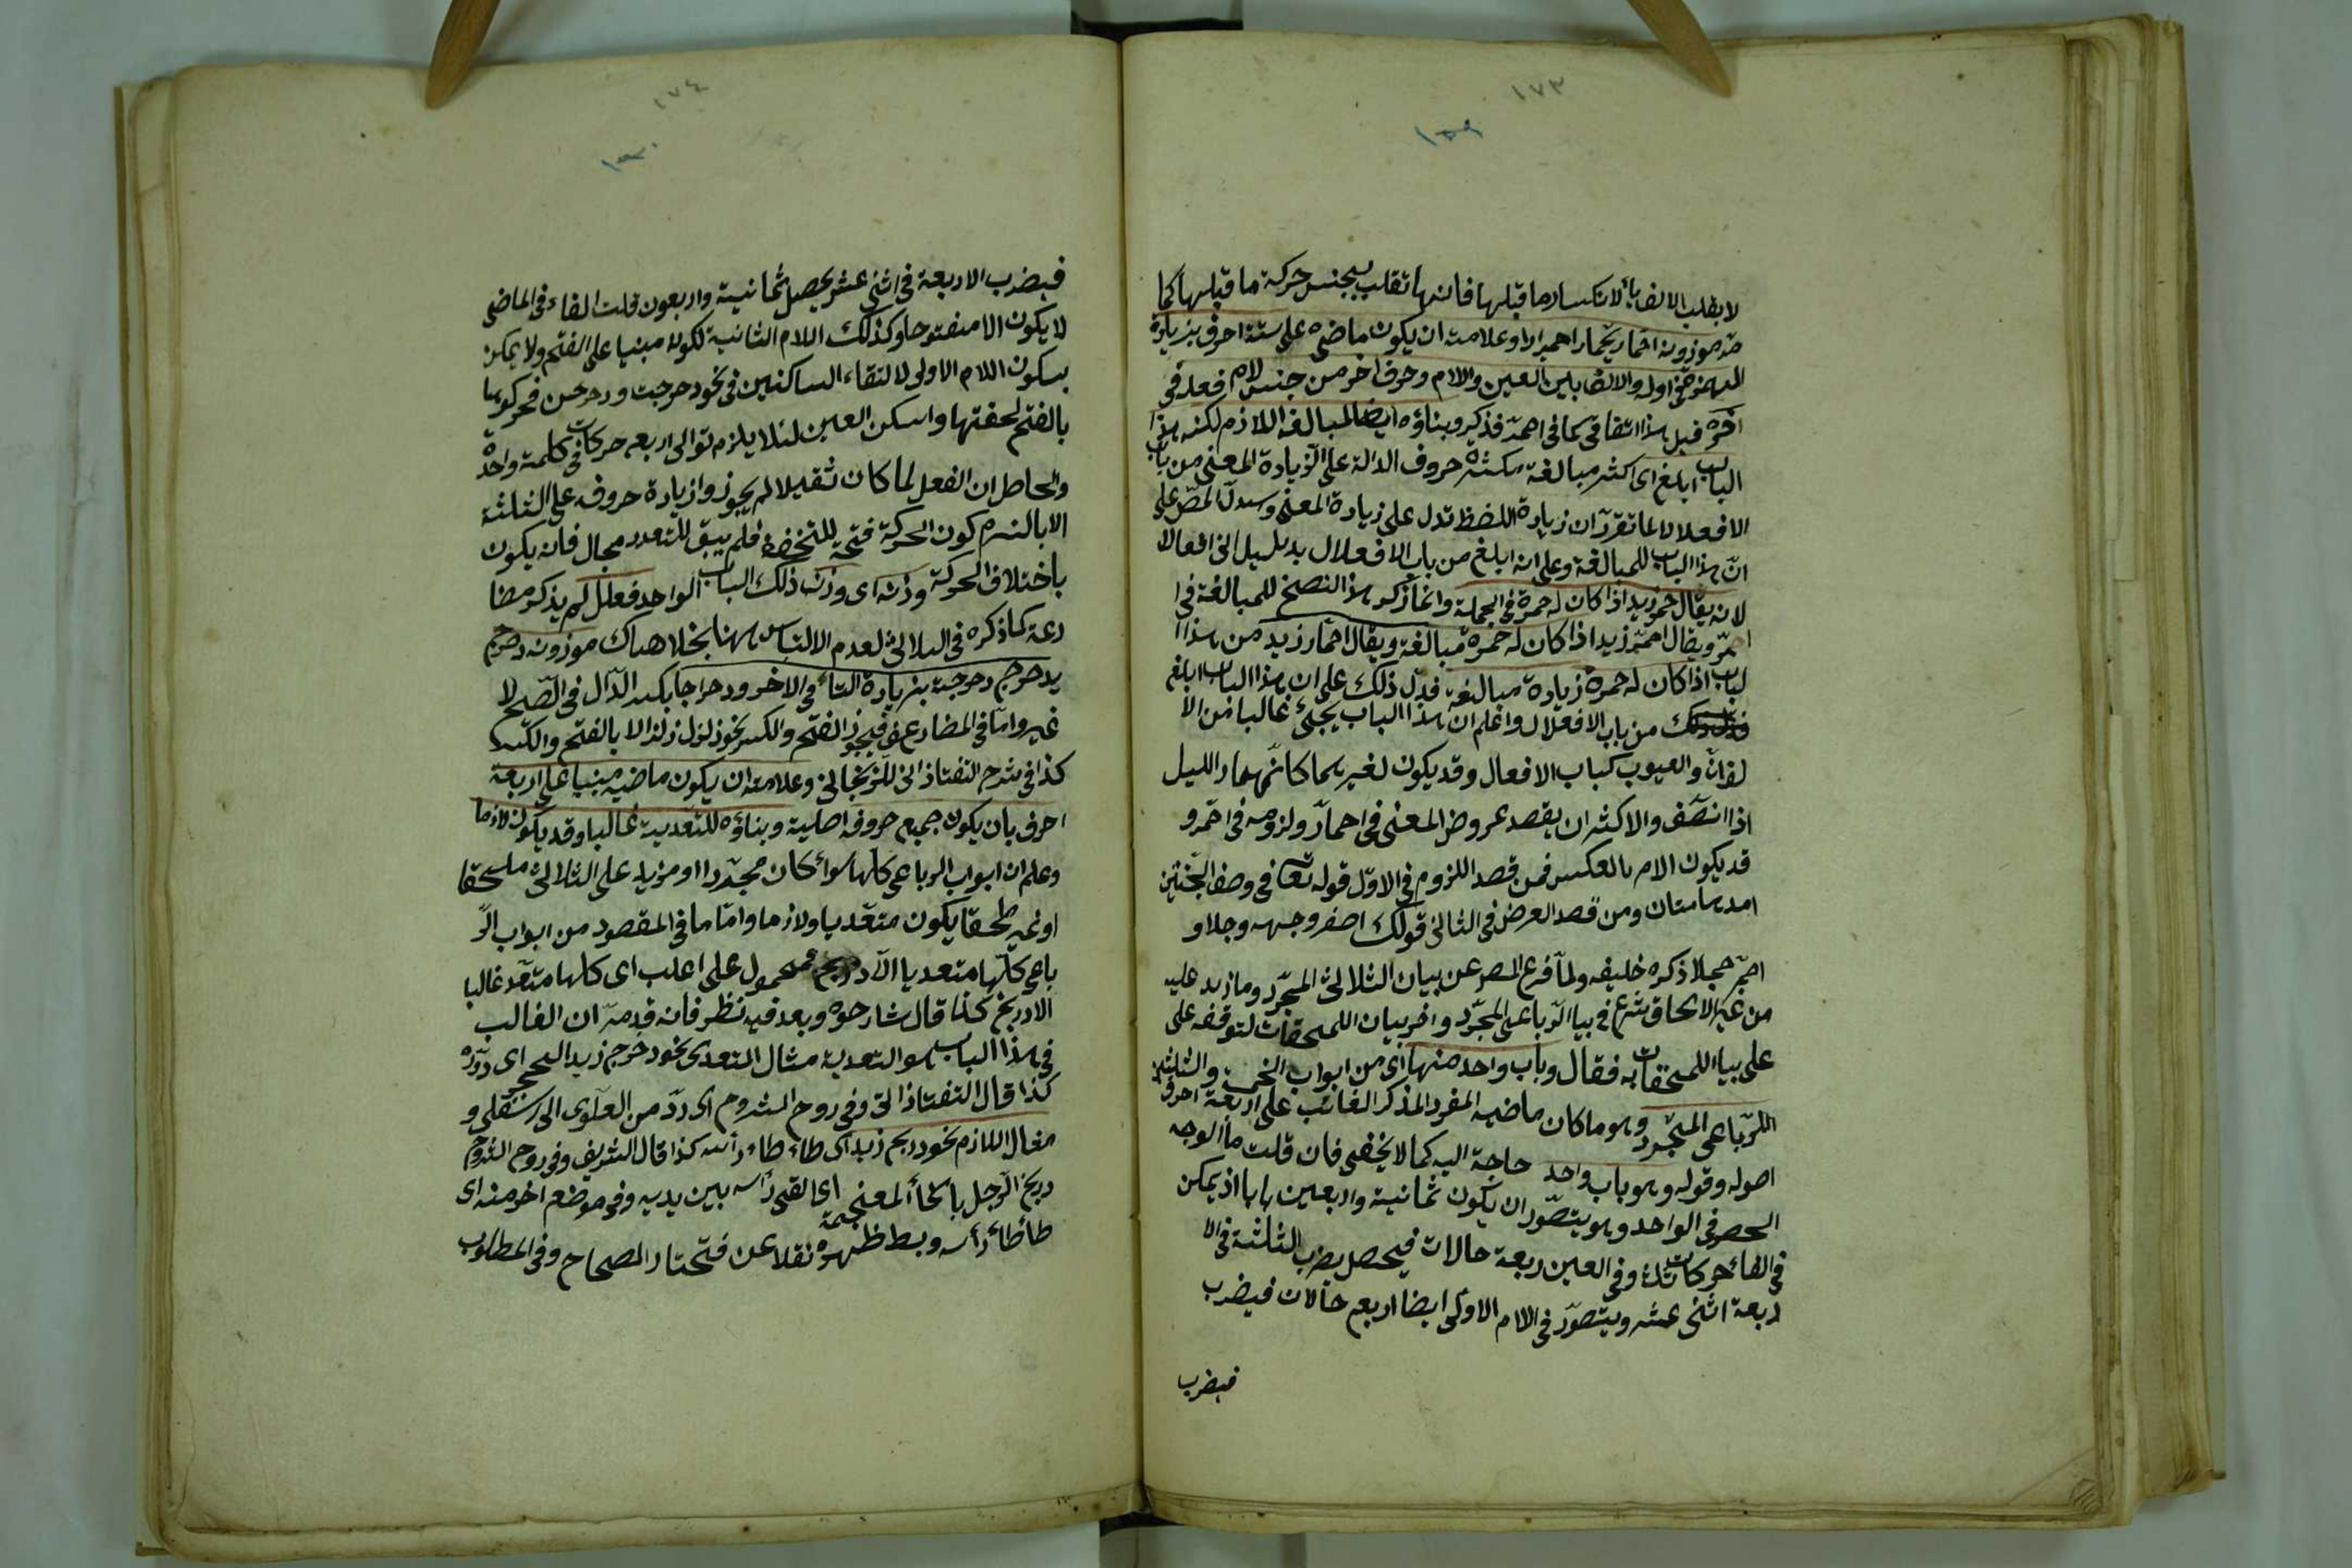 ١٧٣
١٥٩
لا بقلب الالف يأ لانكسار ما قبلها فانها تقلب بجنس حركة ما قبلها كما
مر موزونه احمار يحمار احميرارا وعلامته ان يكون ماضيه على ستة احرف بزيادة
الهمزة فى اوله والالف بين العين واللام وحرف اخر من جنس لام فعله فى
اخره قيل هذا اتفاقى كما فى احمر فذكير وبناؤه ايضا لمبالغة اللازم لكنه هذا
الباب ابلغ اى اكثر مبالغة مكثره حروف الدالة على الزيادة المعنى من باب
الافعلال لما تقرر ان زيادة اللفظ تدل على زيادة المعنى وسدل المص على
ان هذا الباب للمبالغة وعلى انه ابلغ من باب الافعلال بدليل انى افعالا
لانه يقال حمر زيد اذا كان له حمرة فى الجملة وانما ذكر هذا النصخ للمبالغة فى ا
حمر ويقال احمر زيد اذا كان له حمرة مبالغة ويقال احمار زيد من هذا ا
لباب اذا كان له حمرة زيادة مبالغة فدل ذلك على ان هذا الباب ابلغ
من باب الافعلال واعلم ان هذا الباب يجئ غالبا من الا
لوان والعيوب كباب الافعال وقد يكون لغيرهما كانهمار الليل
اذا انتصف والاكثر ان يقصد عروض المعنى فى احمار ولزومه فى احمر و
قد يكون الامر بالعكس فمن قصد اللزوم فى الاول قوله تعا فى وصف الجنتين
مدهامتان ومن قصد العرض فى الثانى قولك اصفر وجهه وجلا و
احمر حجلا ذكره خليفه ولما فرع المص عن بيان الثلاثى المجرد وما زيد عليه
من غير الالحاق شرع فى بيا الرباعى المجرد واخر بيان الملحقات لتوقفه على
على بيا الملحقات به فقال وباب واحد منها اى من ابواب الخمسة والثلثين
للرباعى المجرد وهو ما كان ماضيه المفرد المذكر الغائب على اربعة احرف
اصوله وقوله وهو باب واحد حاجة اليه كما لا يخفى فان قلت ما الوجه
الحصر فى الواحد وهو يتصور ان يكون ثمانية واربعين بابا اذ يمكن
فى الفاء حركات ثلث وفى العين اربعة حالات فيحصل بضرب الثلثة فى الا
ربعة اثنى عشر ويتصور فى اللام الاولى ايضا اربع حالات فيضرب
فيضرب
١٧٤
١٦٠
فيضرب الاربعة فى اثنى عشر يحصل ثمانية واربعون قلت الفاء فى الماضى
لا يكون الا مفتوحا وكذلك اللام الثانية لكونه مبنيا على الفتح ولا يمكن
بسكون اللام الاولى لالتقاء الساكنين فى نحو دحرجت ودحرجن فحركوها
بالفتح لخفتها واسكن العين لئلا يلزم توالى اربع حركات فى كلمة واحدة
والحاصل ان الفعل لما كان ثقيلا لم يجوزوا زيادة حروفه على الثلثة
الا بالتزم كون الحركة فتحة للتخفة فلم يبق للتعدد مجال فانه يكون
باختلاف الحركة وزنه اى وزنه ذلك الباب الواحد فعلل لم يذكر مضا
رعة كما ذكره فى الثلاثى لعدم الالتباس ههنا بخلا هناك موزونه دحرج
يدحرج دحرجة بزيادة التاء فى الاخر ودحراجا بكسر الدال فى الصحيح لا
غير واما فى المضاعف فيجوز الفتح والكسر نحو زلزل زلزالا بالفتح والكسر
كذا فى شرح التفتازانى للزنجانى وعلامته ان يكون ماضيه مبنيا على اربعة
احرف بان يكون جميع حروفه اصلية وبناؤه للتعدية غالبا وقد يكون لازما
وعلم ان ابواب الرباعى كلها سوأ كان مجردا او مزيد على الثلاثى ملحقا
او غير ملحقا يكون متعديا ولازما واما ما فى المقصود من ابواب الر
باعى كلها متعديا الا دربخ فمحمول على اغلب اى كلها متعد غالبا
الا دربخ كذا قال شارحوه وبعد فيه نظر فانه قد مر ان الغالب
فى هذا الباب هو التعدية مثال المتعدى نحو دحرج زيد الحجر اى دوره
كذا قال التفتازانى وفى روح الشروح اى رد من العلوى الى سفلى و
مثال اللازم نحو دربخ زيد اى طاء طاء رأسه كذا قال الشريف وفى روح الشروح
دربخ الرجل بالخأ المعجمة اى القى رأسه بين يديه وفى موضع اخر منه اى
طأطأ رأسه وبسط ظهره نقلا عن مختار الصحاح وفى المطلوب